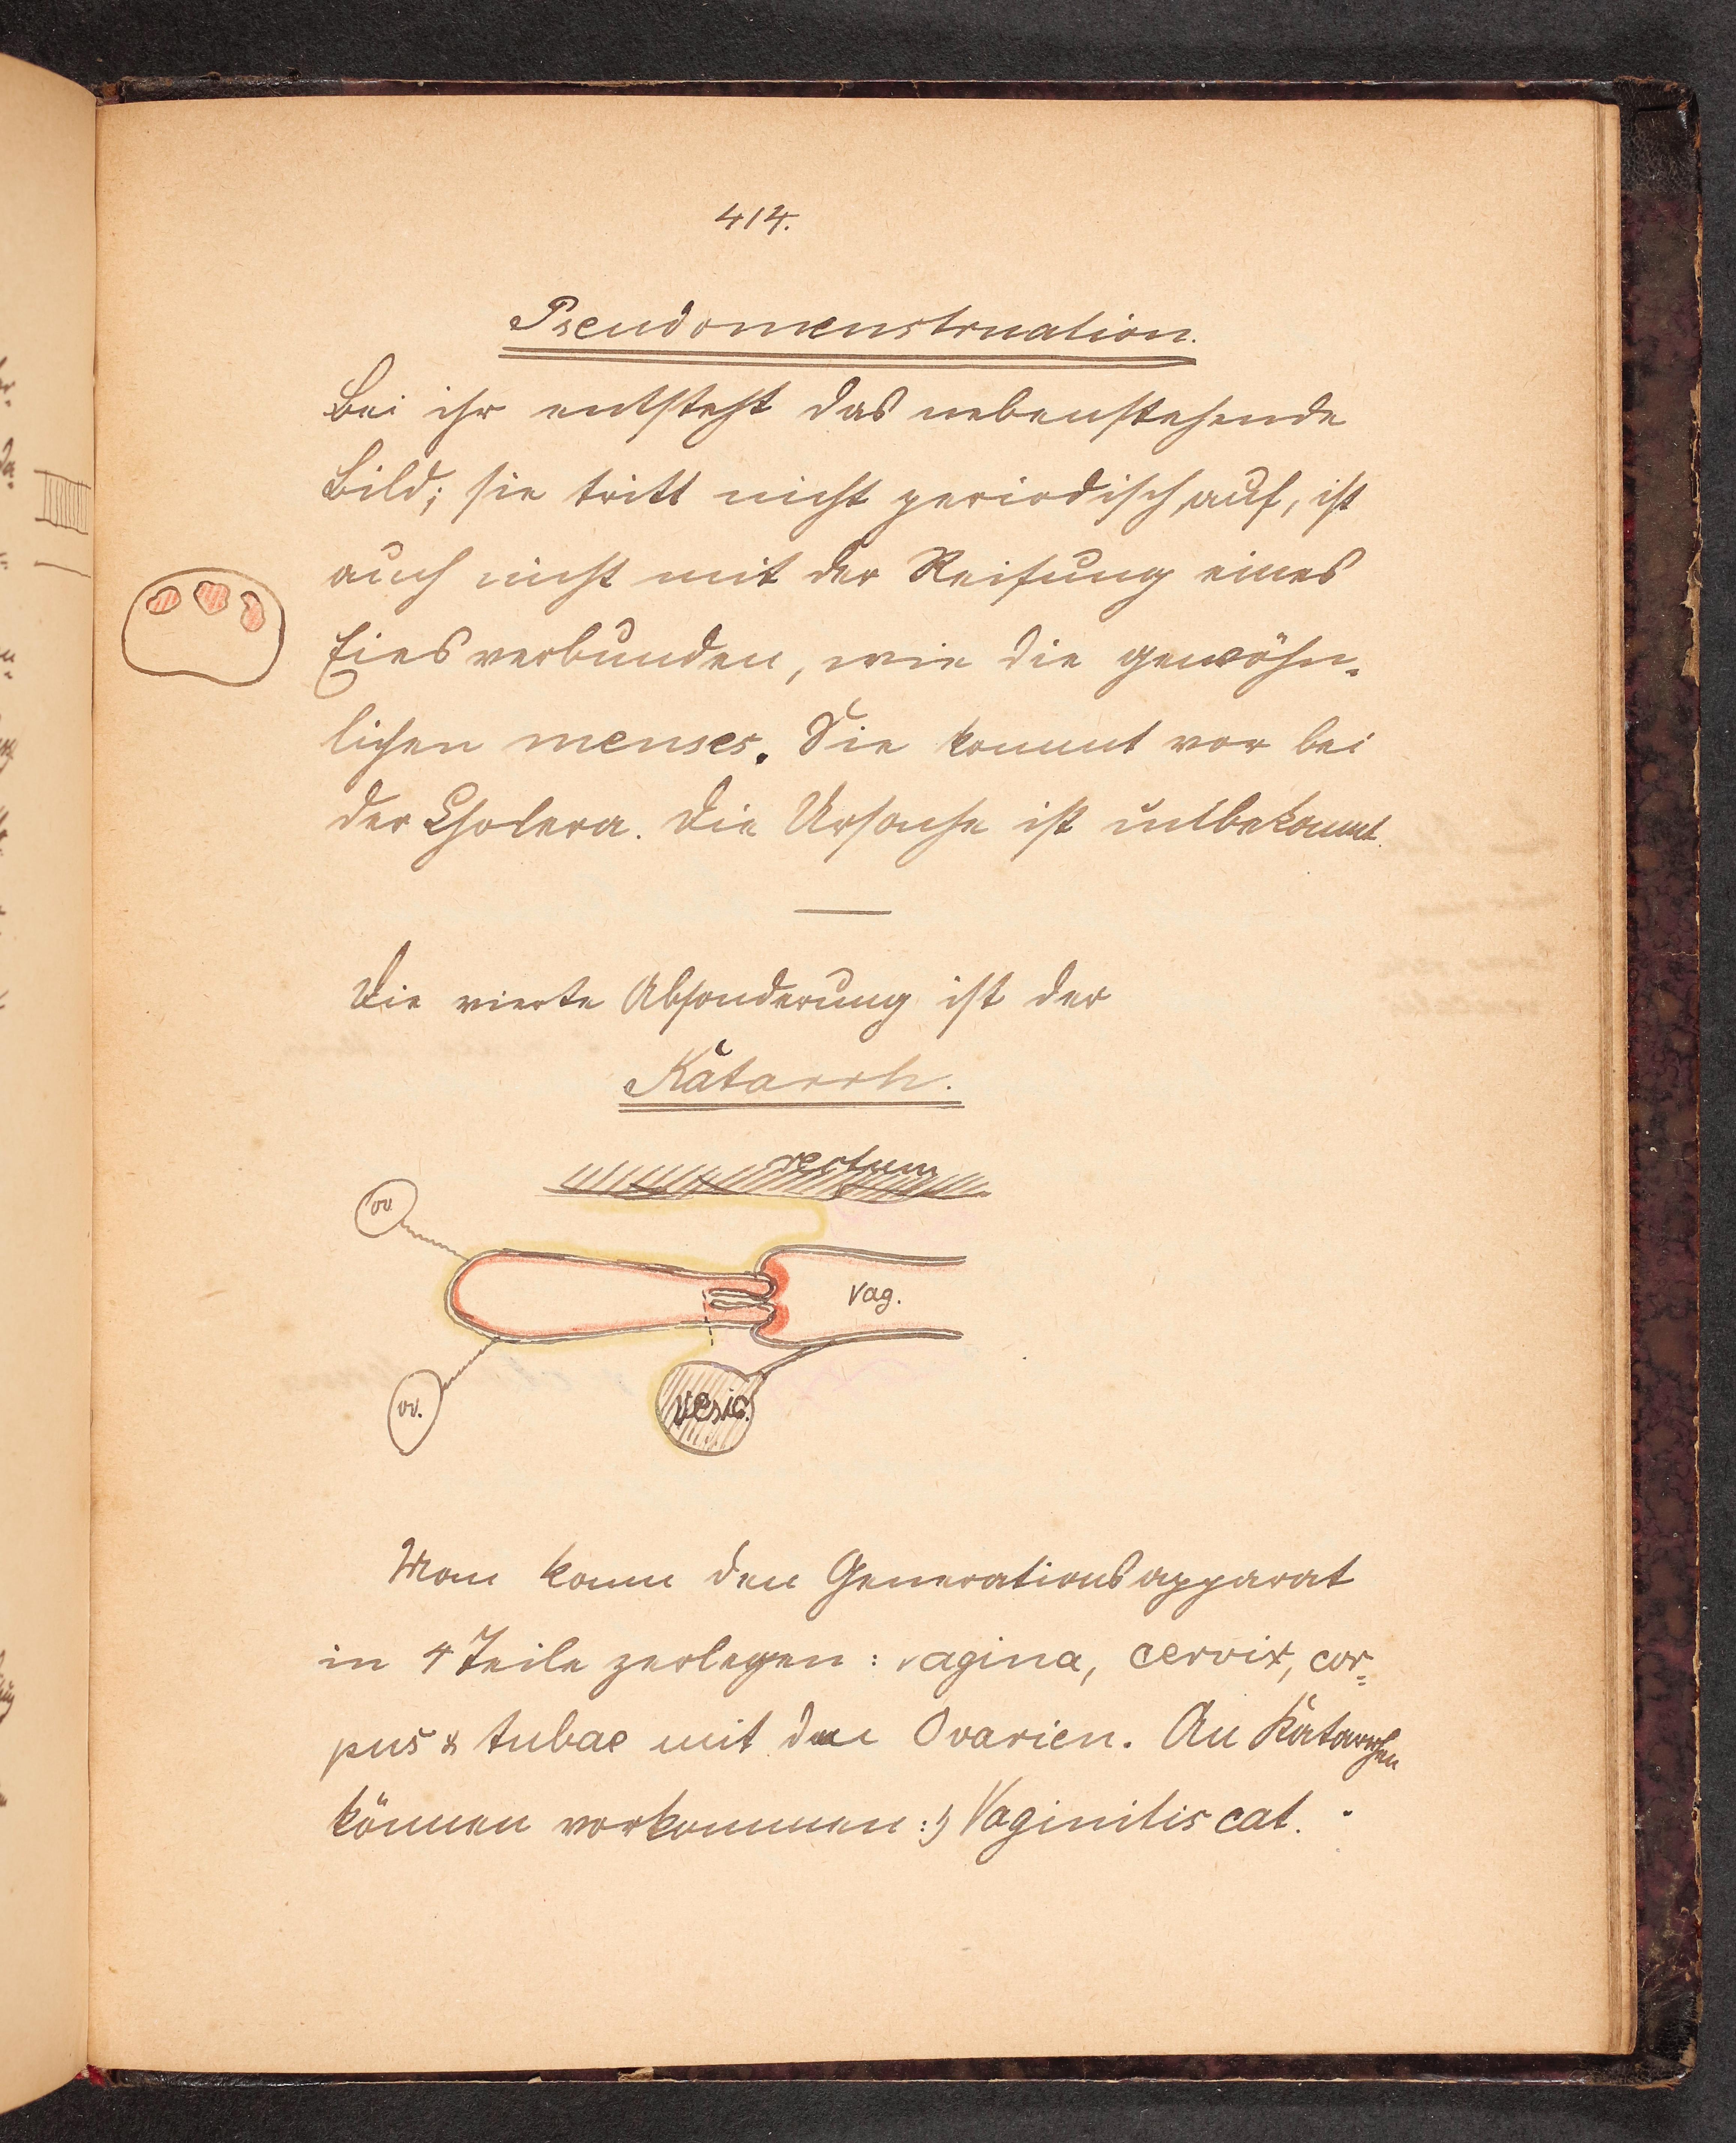 414.
Pseudomenstruation.
Bei ihr entsteht das nebenstehende
Bild; sie tritt nicht periodisch auf, ist
auch nicht mit der Reifung eines
Eies verbunden, wie die gewöhn-
lichen menses. Sie kommt vor bei
der Cholera. Die Ursache ist unbekannt.
Die vierte Absonderung ist der
Katarrh.
rectum
ov
vag.
ov.
vesic.
Man kann den Generationsapparat
in 4 Teile zerlegen: vagina, cervix, cor-
pus & tubae mit den Ovarien. An Katarrhen
können vorkommen: 1) Vaginitis cat.